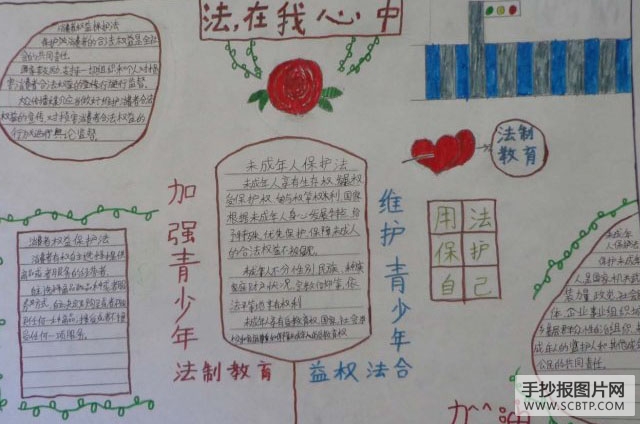 法,在我心中
消费者权益保护法
保护消费者的合法权益是全社
会的共同责任。
国家鼓励、支持一切组织和个人对损
害消费者合法权益的行为进行社会监督。
大众传播媒介应当做好维护消费者合法
权益的宣传,对损害消费者合法权益的
行为进行舆论监督。
法制
教育
加强青少年
法制教育
未成年人保护法
未成年人享有生存权、发展权
受保护权、参与权等权利,国家
根据未成年人身心发展特点给
予特殊、优先保护,保障未成年人
的合法权益不被侵犯。
未成年人不分性别、民族、种族
家庭财产状况、宗教信仰等,依
法平等地享有权利
未成年人享有受教育权,国家、社会、学
维护青少年
益权法合
用法
保护
自己
消费者权益保护法
任何一项服务。
未成年
人保护法
保护未成年
人,是国家机关、
武装力量、政党、社会
体、企业事业组织、城
乡基层群众性自治组织、
成年人的监护人和其他成
公民的共同责任。
加油
手抄报图片网
WWW.SCBTP.COM